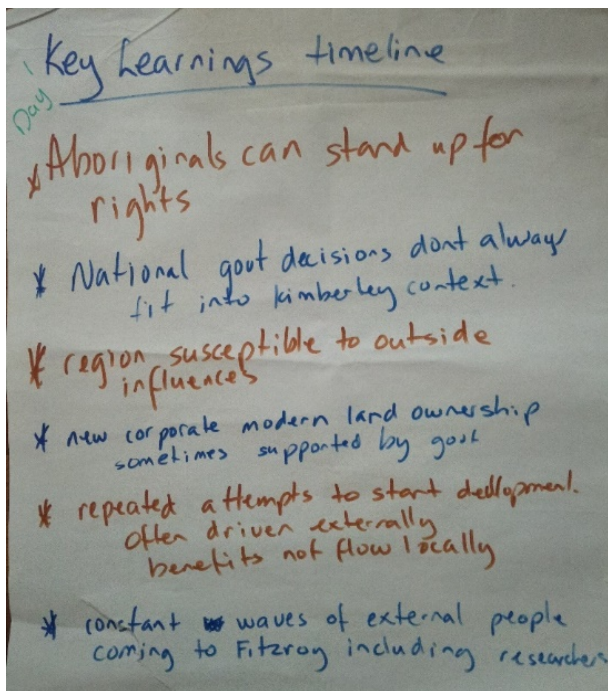 Day 1
Key Learnings timeline
* Aboriginals can stand up for
rights
* National govt decisions dont always
fit into kimberley context.
* region susceptible to outside
influences
* new corporate modern land ownership
sometimes supported by govt
* repeated attempts to start devllopment.
often driven externally
benefits not flow locally
* constant waves of external people
coming to Fitzroy including researchers